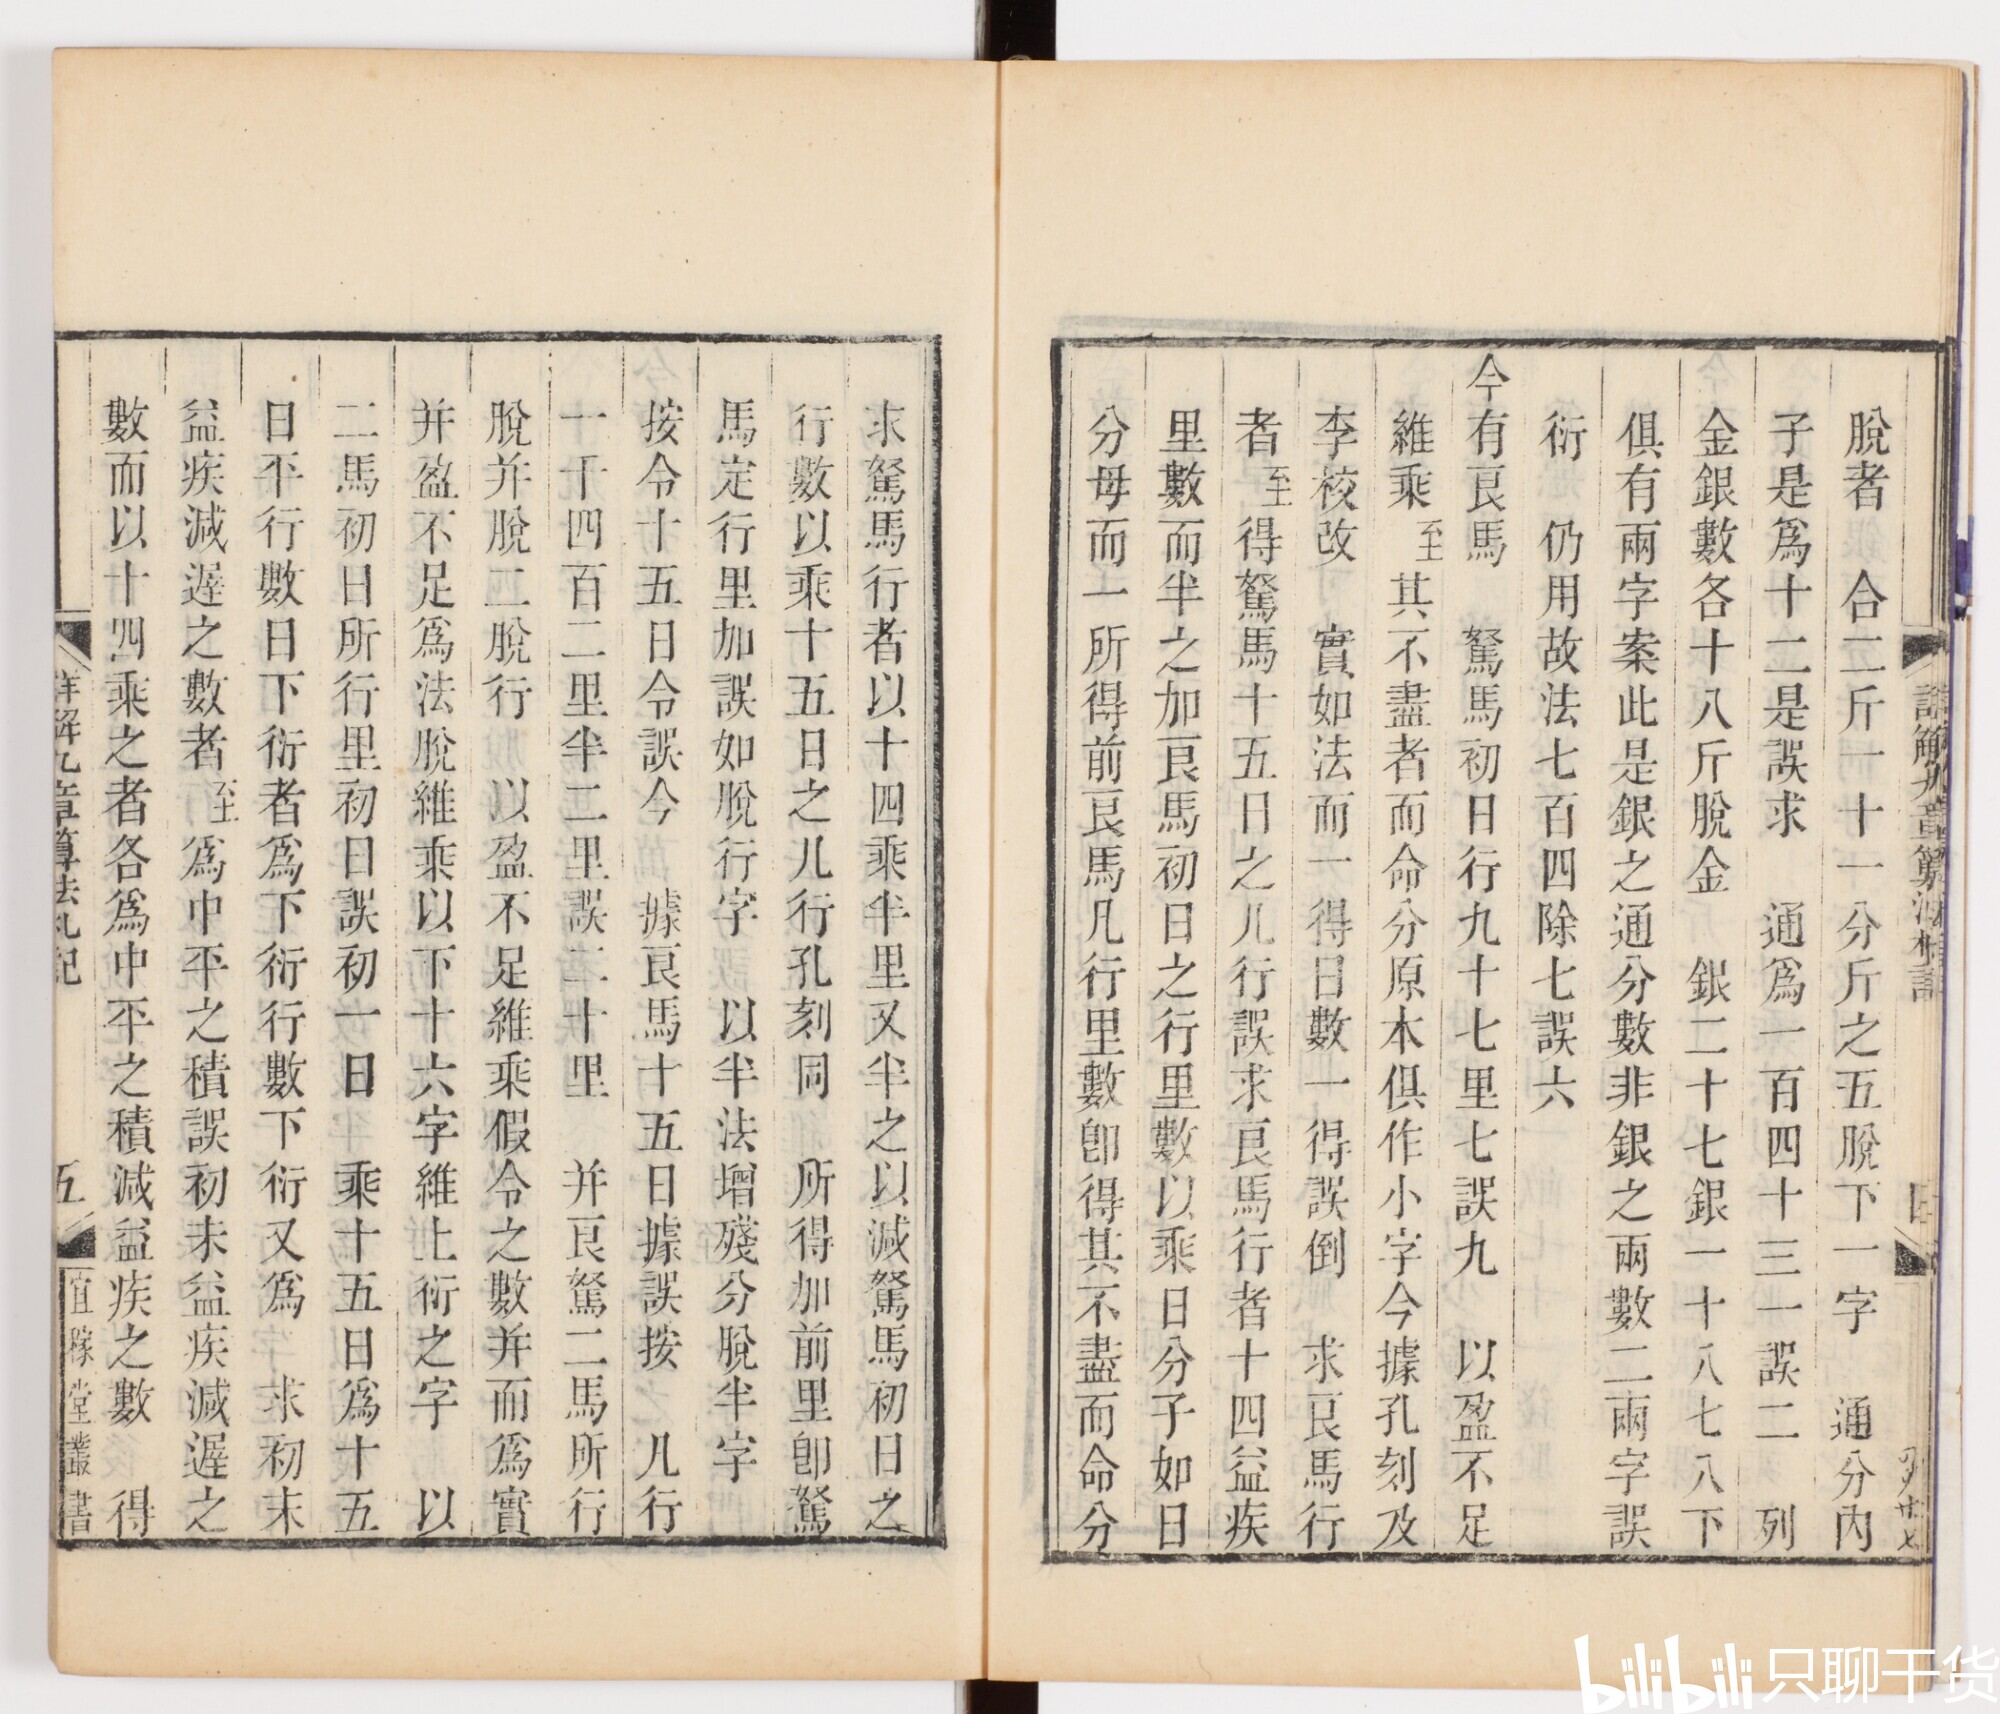 脫者　合二斤一十一分斤之五脫下一字　通分內
子是爲十二是誤求　通爲一百四十三一誤二　列
金銀數各十八斤脫金　銀二十七銀一十八七八下
俱有兩字案此是銀之通分數非銀之兩數二兩字誤
衍　仍用故法七百四除七誤六
今有良馬　駑馬初日行九十七里七誤九　以盈不足
維乘至其不盡者而命分原本俱作小字今據孔刻及
李校改　實如法而一得日數一得誤倒　求良馬行
者至得駑馬十五日之凡行誤求良馬行者十四益疾
里數而半之加良馬初日之行里數以乘日分子如日
分母而一所得前良馬凡行里數卽得其不盡而命分
求駑馬行者以十四乘半里又半之以減駑馬初日之
行數以乘十五日之凡行孔刻同　所得加前里卽駑
馬定行里加誤如脫行字　以半法增殘分脫半字
按令十五日令誤今　據良馬十五日據誤按　凡行
一千四百二里半二里誤二十里　并良駑二馬所行
脫并脫二脫行　以盈不足維乘假令之數并而爲實
并盈不足爲法脫維乘以下十六字維上衍之字　以
二馬初日所行里初日誤初一日　乘十五日爲十五
日平行數日下衍者爲下衍行數下衍又爲　求初末
益疾減遲之數者至爲中平之積誤初未益疾減遲之
數而以十四乘之者各爲中平之積減益疾之數　得
詳解九章算法札記
五
宜稼堂叢書
bilibili 只聊干货